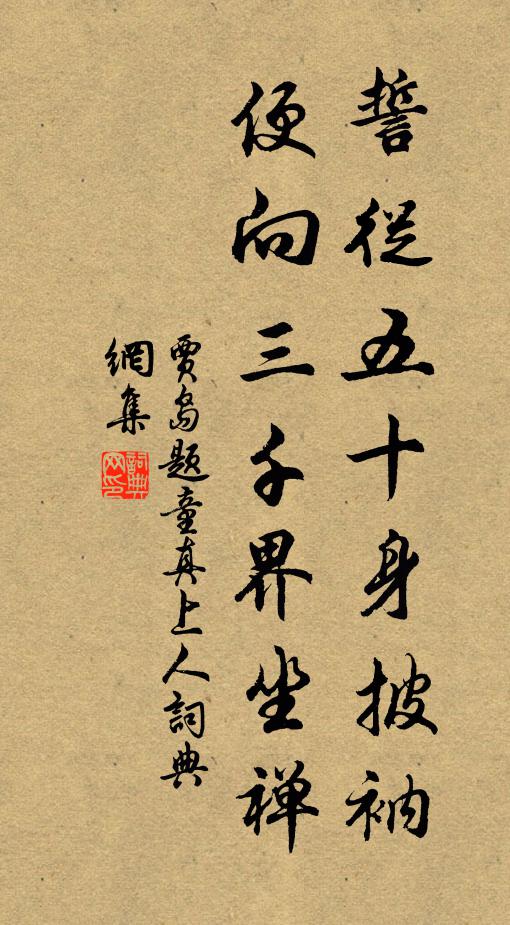 誓從五十身披衲
便向三千界坐禅
賈島題童真上人詞典
網集
詞典
网印